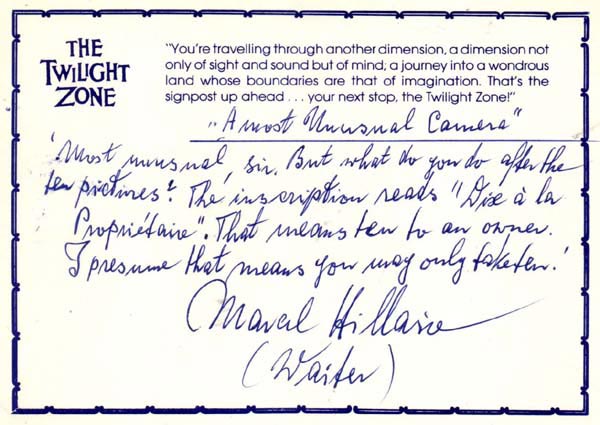 THE
TWILIGHT
ZONE
"You're travelling through another dimension, a dimension not
only of sight and sound but of mind; a journey into a wondrous
land whose boundaries are that of imagination. That's the
signpost up ahead . . . your next stop, the Twilight Zone!"
„A most Unusual Camera"
'Most unusual, sir. But what do you do after the
ten pictures? The inscription reads "Dix à la
Propriétaire". That means ten to an owner.
I presume that means you may only take ten.'
Marcel Hillaire
(Waiter)